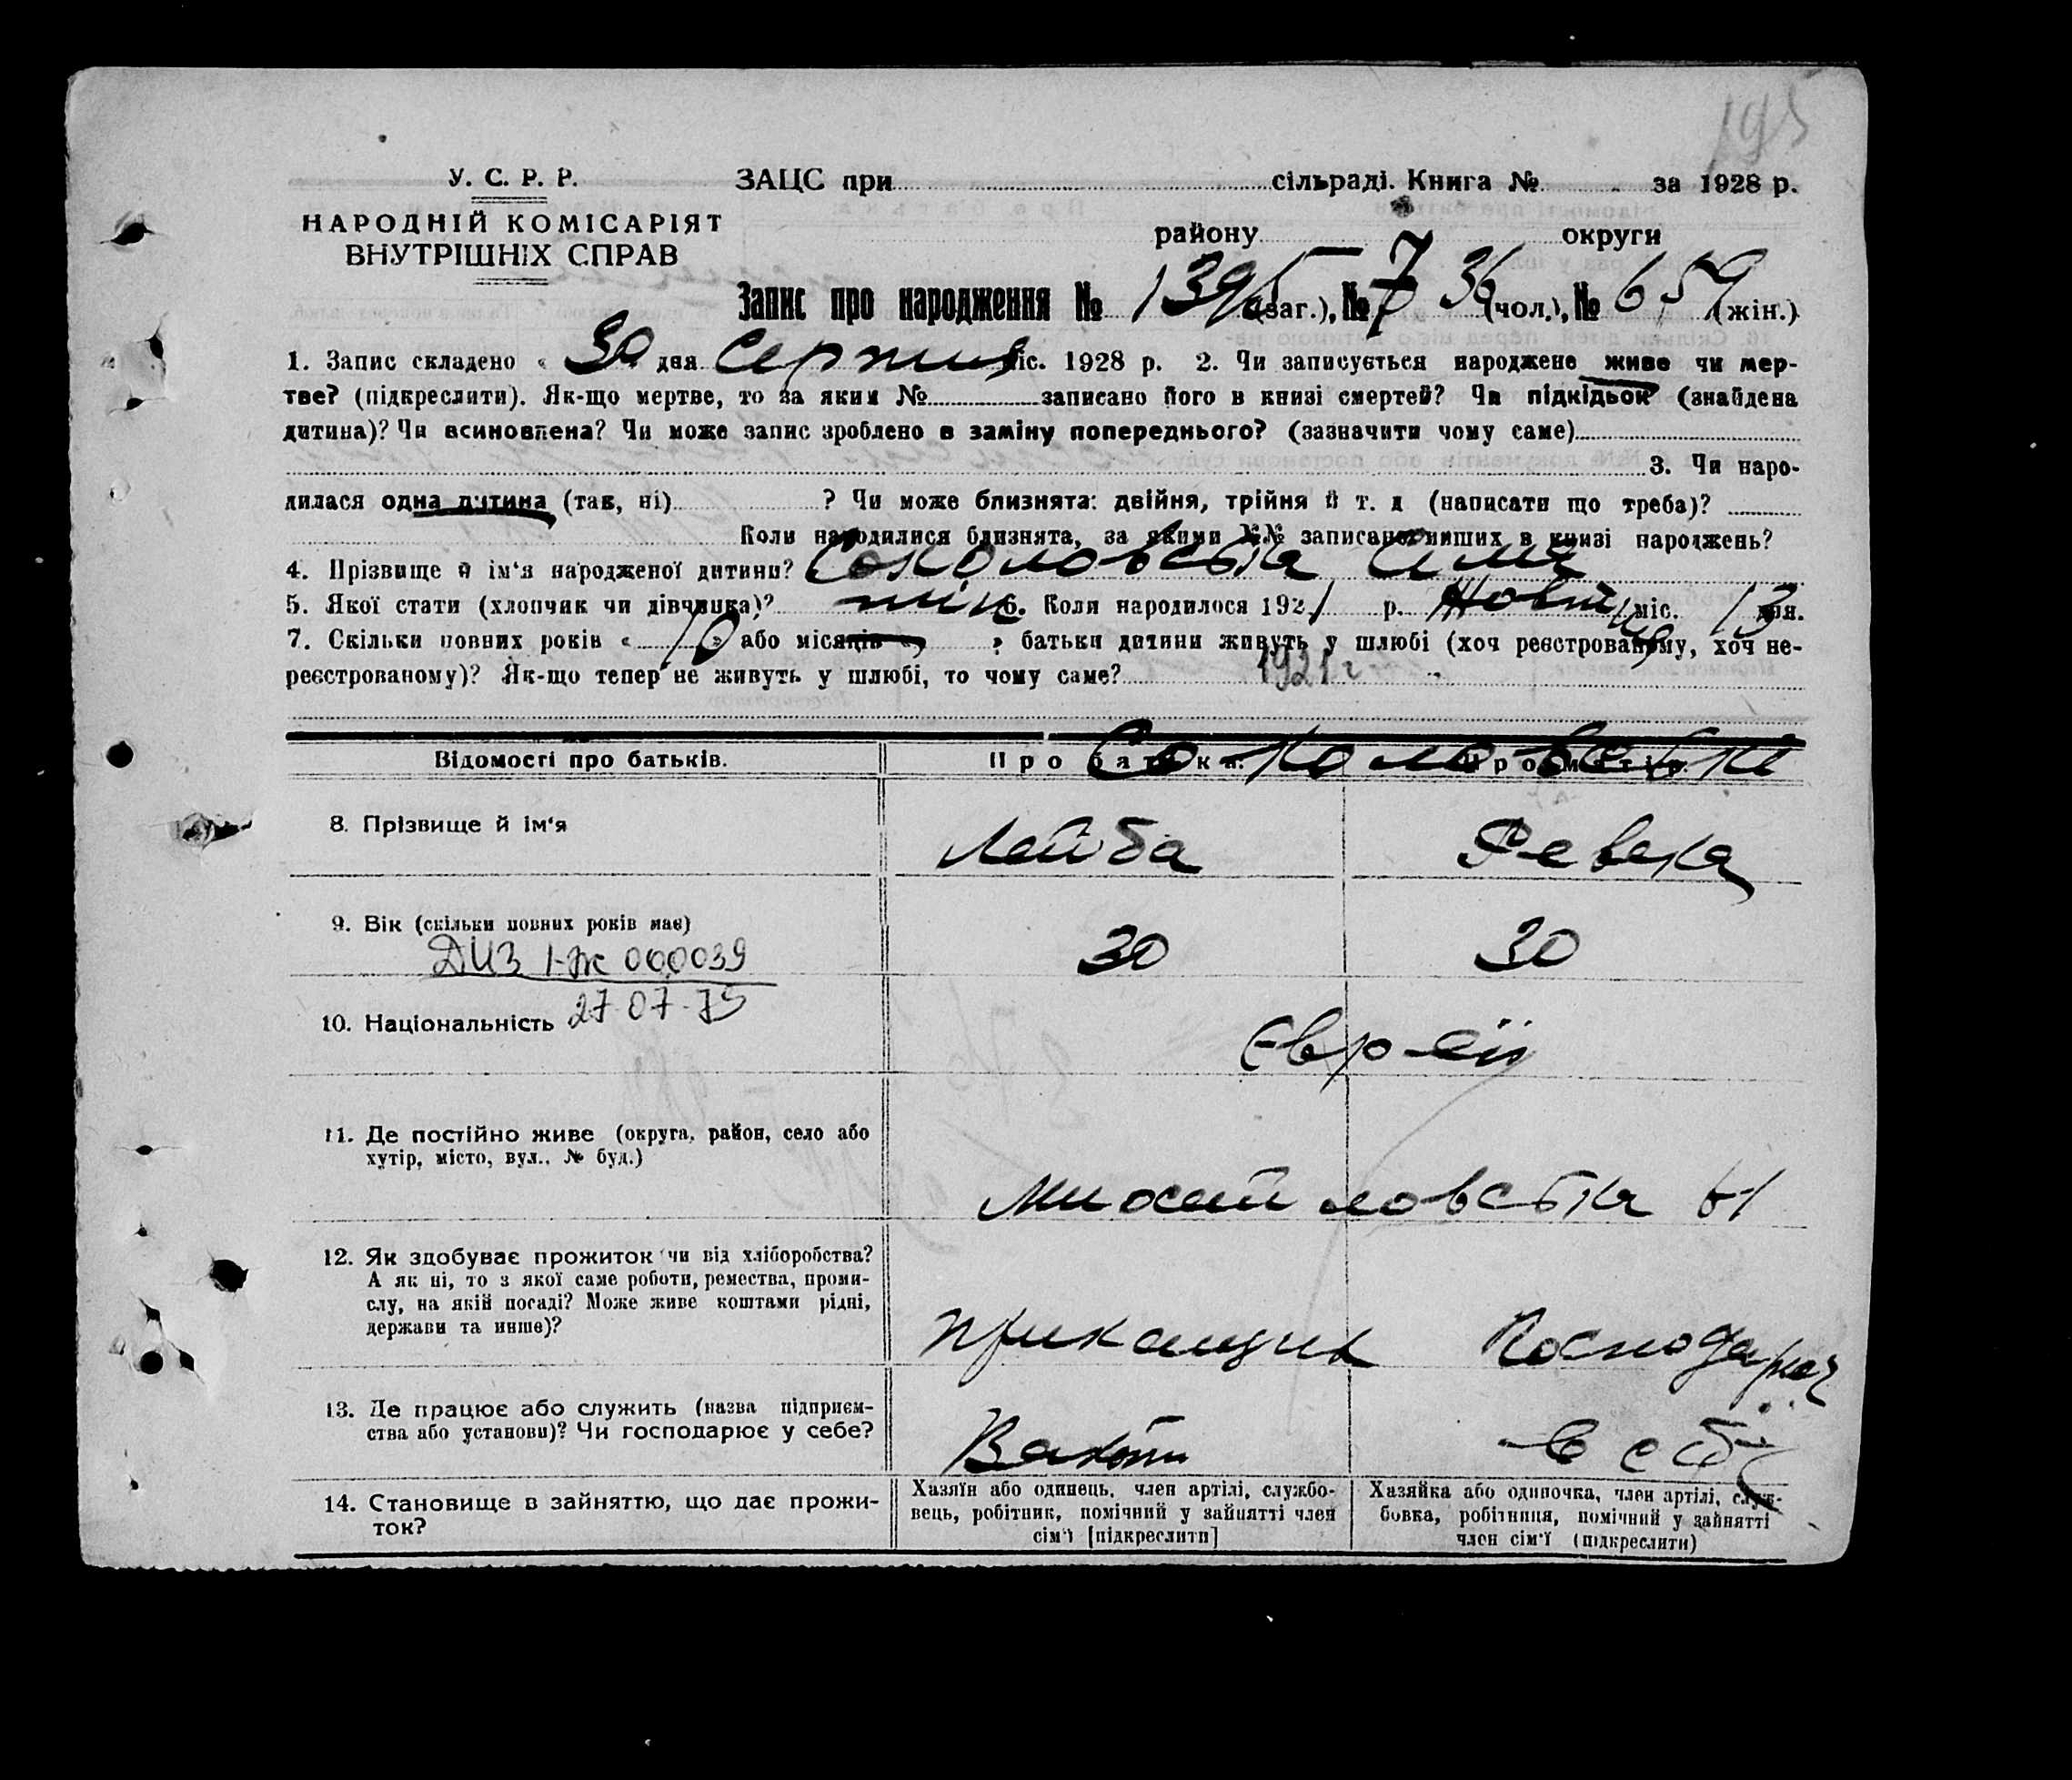 195
У. С. Р. Р.
НАРОДНІЙ КОМІСАРІЯТ
ВНУТРІШНІХ СПРАВ
ЗАЦС при сільраді. Книга № за 1928 р.
району округи
Запис про народження № 1395 (заг.), № 736 (чол.), № 659 (жін.)
1. Запис складено « 30 » дня Серпня міс. 1928 р. 2. Чи записується народжене живе чи мер-
тве? (підкреслити). Як-що мертве, то за яким № записано його в книзі смертей? Чи підкідьок (знайдена
дитина)? Чи всиновлена? Чи може запис зроблено в заміну попереднього? (зазначити чому саме)
3. Чи наро-
дилася одна дитина (так, ні) ? Чи може близнята: двійня, трійня й т. д (написати що треба)?
Коли народилися близнята, за якими №№ записано инших в книзі народжень?
4. Прізвище й ім'я народженої дитини? Соколовська Сима
5. Якої стати (хлопчик чи дівчинка)? жін 6. Коли народилося 1921 р. Жовтня міс. 13 дня.
7. Скільки повних років « 10 » або місяців « » батьки дитини живуть у шлюбі (хоч реєстрованому, хоч не-
реєстрованому)? Як-що тепер не живуть у шлюбі, то чому саме? 1921 г
Відомості про батьків. Про батька. Про матір.
Соколовські
8. Прізвище й ім'я Лейба Ревека
9. Вік (скільки повних років має) 30 30
ДИЗ I-ЖС 000039
27-07-75
10. Національність Євреї
11. Де постійно живе (округа, район, село або
хутір, місто, вул., № буд.)
12. Як здобуває прожиток чи від хліборобства?
А як ні, то з якої саме роботи, ремества, проми-
слу, на якій посаді? Може живе коштами рідні,
держави та инше)?
прикащик Господарює
13. Де працює або служить (назва підприєм-
ства або установи)? Чи господарює у себе?
в себе
14. Становище в зайняттю, що дає прожи-
ток?
Хазяїн або одинець, член артілі, службо-
вець, робітник, помічний у зайнятті член
сім'ї [підкреслити]
Хазяйка або одиночка, член артілі, служ-
бовка, робітниця, помічний у зайнятті
член сім'ї (підкреслити)